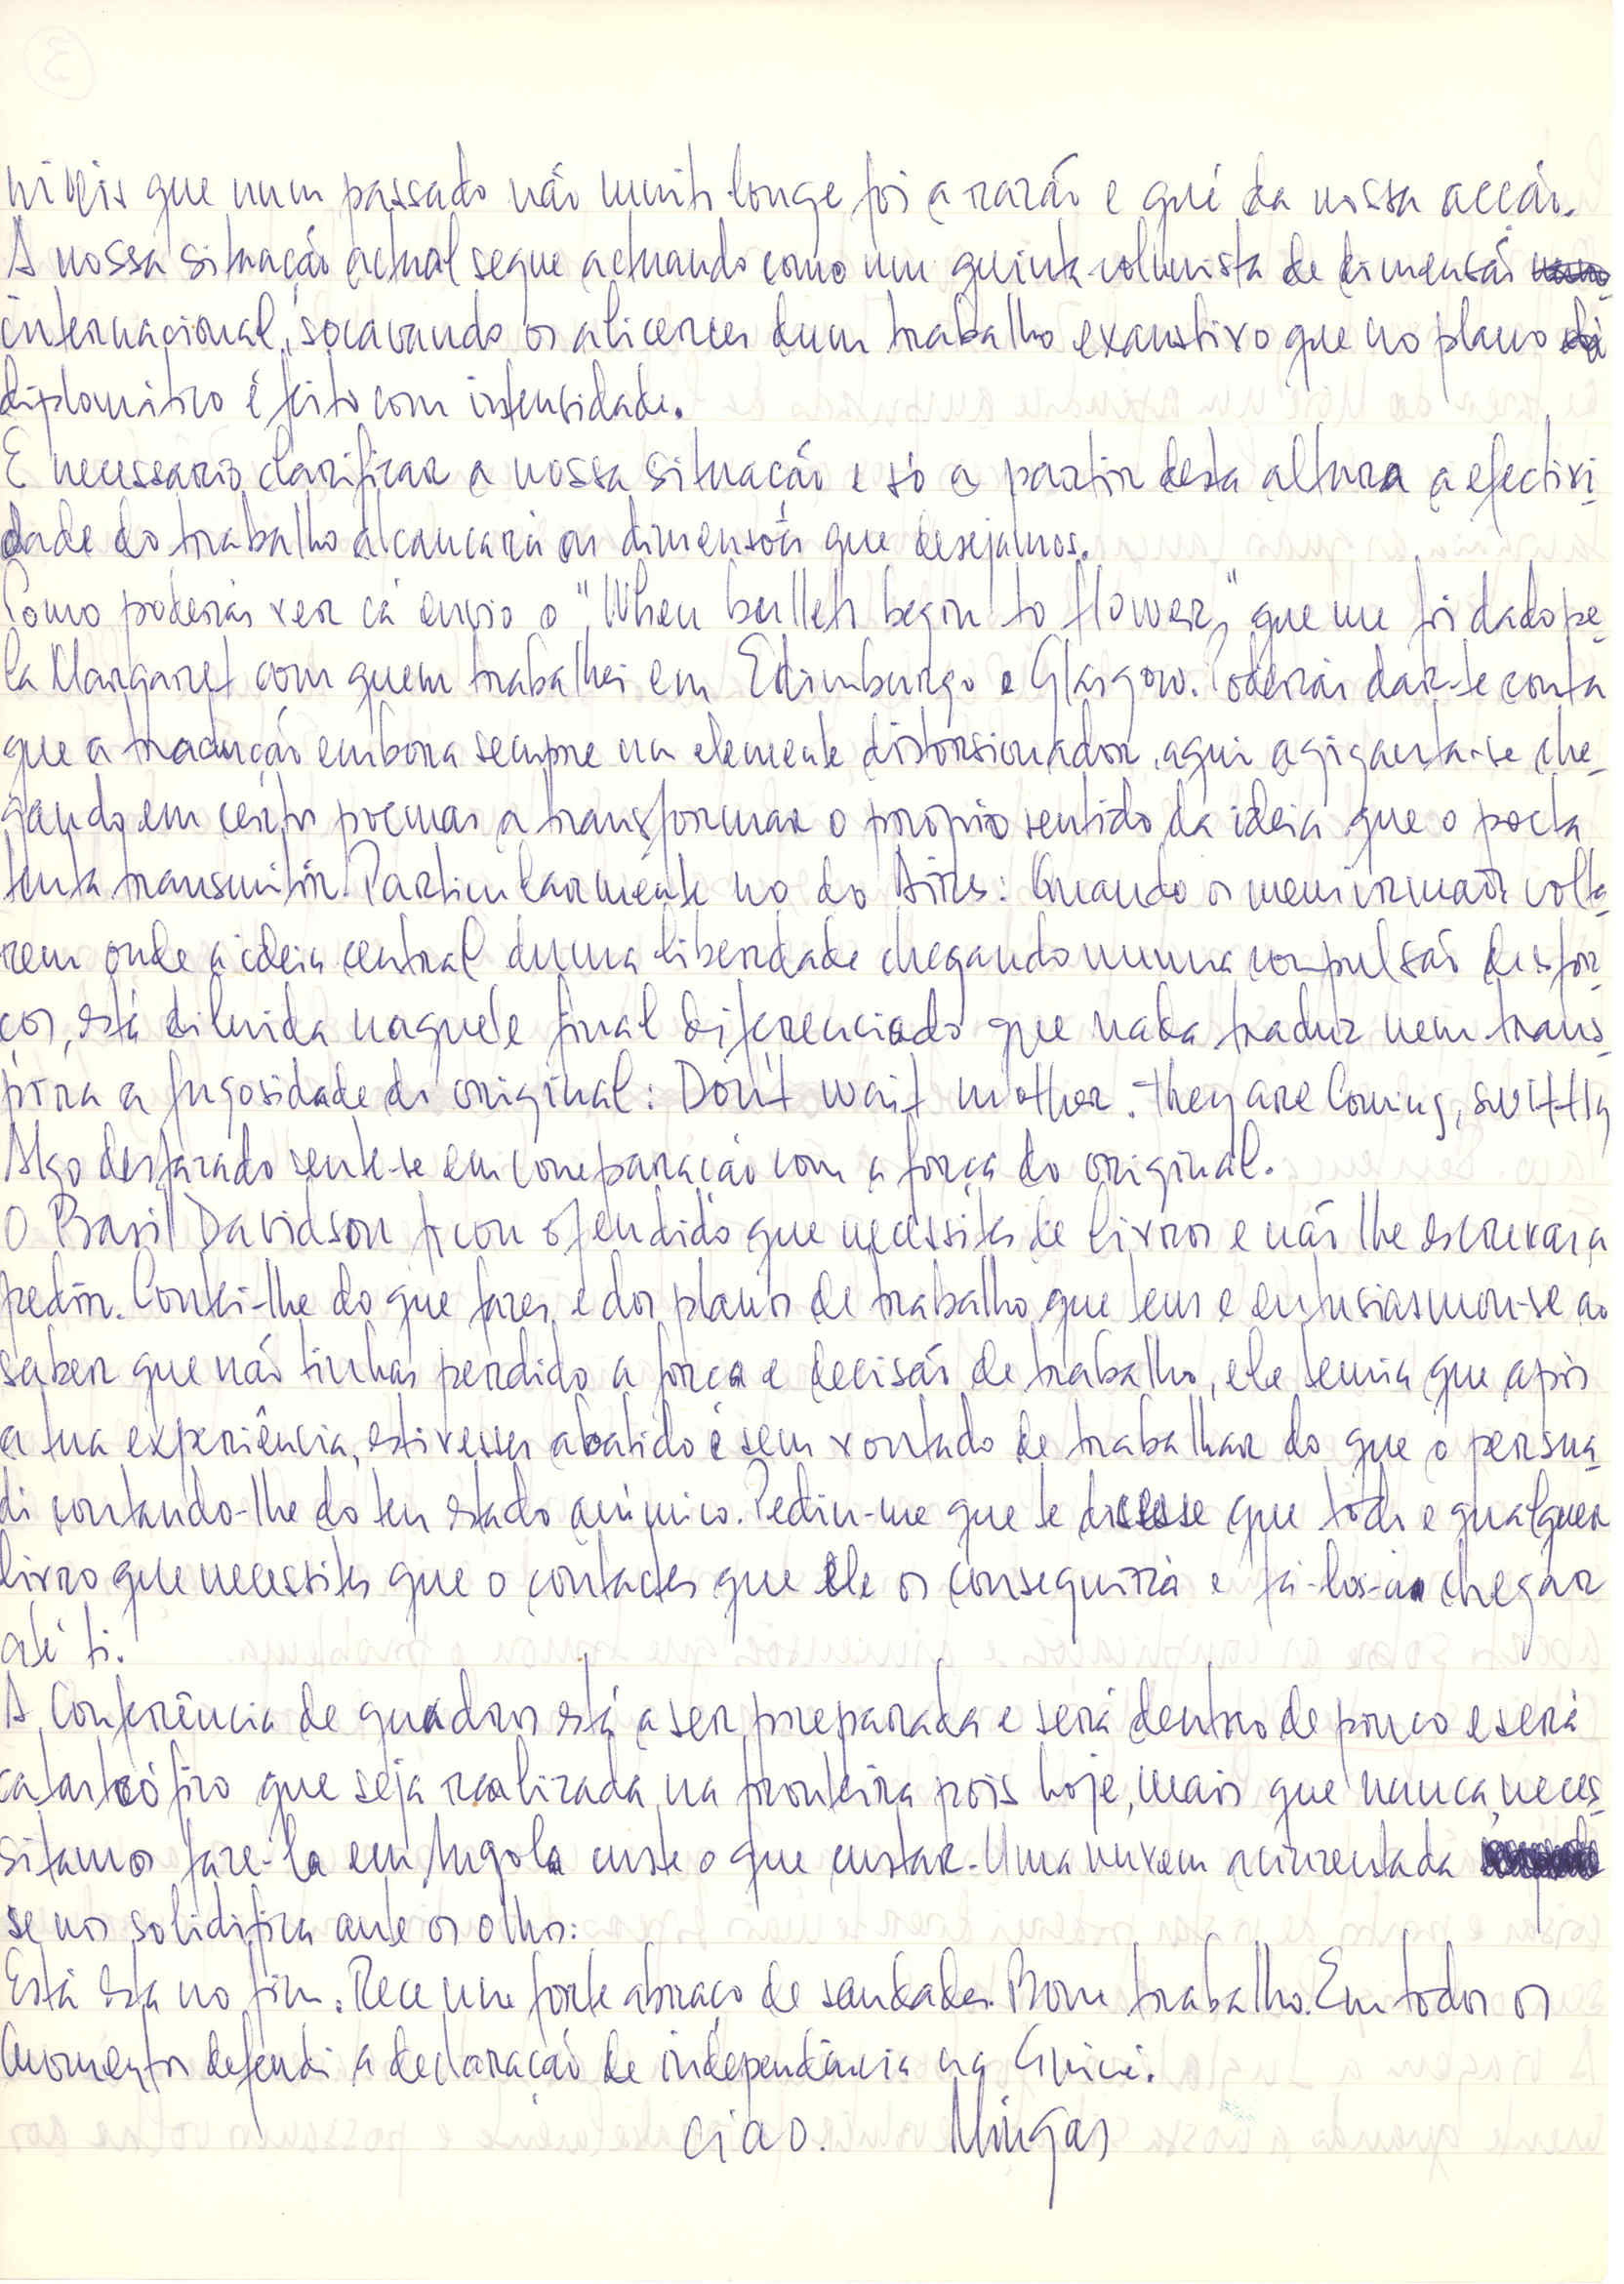 que num passado não muito longe foi a razão e gué da nossa acção.
A nossa situação actual segue actuando como um quinta-colunista de dimensão
internacional, socavando os alicerces dum trabalho exaustivo que no plano
diplomático é feito com intensidade.
É necessário clarificar a nossa situação e só a partir desta altura a efectivi-
dade do trabalho alcançará as dimensões que desejamos.
Como poderás ver cá envio o "When bullets begin to flower," que me foi dado pe-
la Margaret com quem trabalhei em Edimburgo e Glasgow. Poderás dar-te conta
que a tradução embora sempre um elemento distorsionador, aqui agiganta-se che-
gando em certos poemas a transformar o próprio sentido da ideia que o poeta
tenta transmitir. Particularmente no do Aires: Quando os meus irmãos volta-
rem onde a ideia central duma liberdade chegando numa compulsão desfor-
ços, está diluida naquele final diferenciado que nada traduz nem trans-
pira a fugosidade do original: Don't wait mother. They are coming, swiftly
Algo desfazado sente-se em comparação com a força do original.
O Basil Davidson ficou ofendido que necessites de livros e não lhe escrevas a
pedir. Contei-lhe do que fazes e dos planos de trabalho que tens e entusiasmou-se ao
saber que não tinhas perdido a força e decisão de trabalho, ele temia que após
a tua experiência, estivesses abatido e sem vontade de trabalhar do que o persua-
di contando-lhe do teu estado anímico. Pediu-me que te dissesse que todo e qualquer
livro que necessites que o contactes que ele os conseguirá e fá-los-á chegar
até ti.
A Conferência de quadros está a ser preparada e será dentro de pouco e será
catastrófico que seja realizada na fronteira pois hoje, mais que nunca, neces-
sitamos fazê-la em Angola custe o que custar. Uma nuvem acinzentada
se nos solidifica ante os olhos:
Está esta no fim. Rece um forte abraço de saudades. Bom trabalho. Em todos os
momentos defendi a declaração de independência na Guiné.
Ciao. Mingas